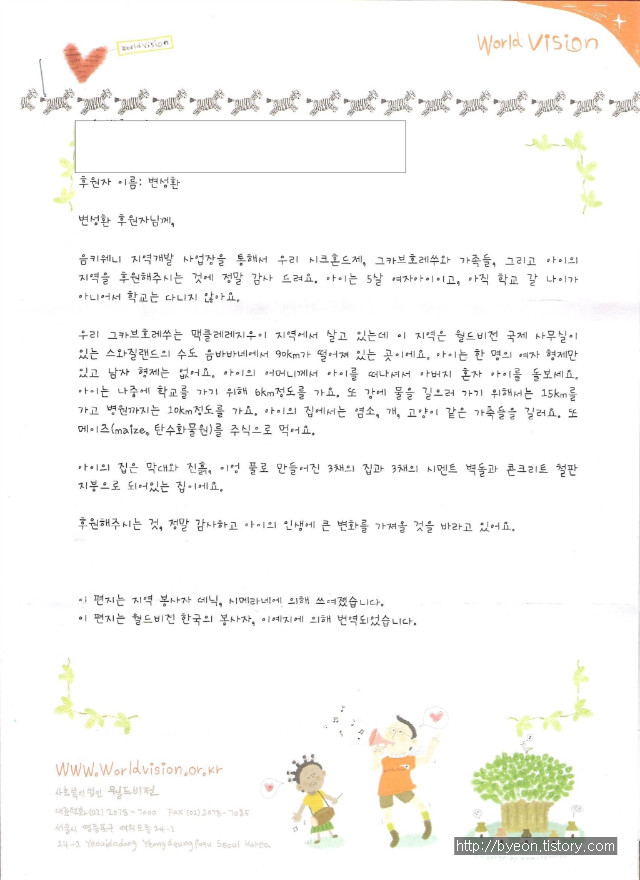 world vision
World Vision
후원자 이름: 변성환
변성환 후원자님께,
음키웨니 지역개발 사업장을 통해서 우리 시크혼드제, 그카브호레쑤와 가족들, 그리고 아이의
지역을 후원해주시는 것에 정말 감사 드려요. 아이는 5살 여자아이이고, 아직 학교 갈 나이가
아니어서 학교는 다니지 않아요.
우리 그카브호레쑤는 맥클레레지우이 지역에서 살고 있는데 이 지역은 월드비전 국제 사무실이
있는 스와질랜드의 수도 음바바네에서 90km가 떨어져 있는 곳이에요. 아이는 한 명의 여자 형제만
있고 남자 형제는 없어요. 아이의 어머니께서 아이를 떠나셔서 아버지 혼자 아이를 돌보세요.
아이는 나중에 학교를 가기 위해 6km정도를 가요. 또 강에 물을 길으러 가기 위해서는 15km를
가고 병원까지는 10km정도를 가요. 아이의 집에서는 염소, 개, 고양이 같은 가축들을 길러요. 또
메이즈(maize, 탄수화물원)를 주식으로 먹어요.
아이의 집은 막대와 진흙, 이엉 풀로 만들어진 3채의 집과 3채의 시멘트 벽돌과 콘크리트 철판
지붕으로 되어있는 집이에요.
후원해주시는 것, 정말 감사하고 아이의 인생에 큰 변화를 가져올 것을 바라고 있어요.
이 편지는 지역 봉사자 데닉, 시메라네에 의해 쓰여졌습니다.
이 편지는 월드비전 한국의 봉사자, 이예지에 의해 번역되었습니다.
www.worldvision.or.kr
사회복지법인 월드비전
대표전화 (02) 2078-7000 FAX (02) 2078-7085
서울시 영등포구 여의도동 24-2
24-2 Yeouidodong Yeongdeungpogu Seoul Korea
http://byeon.tistory.com